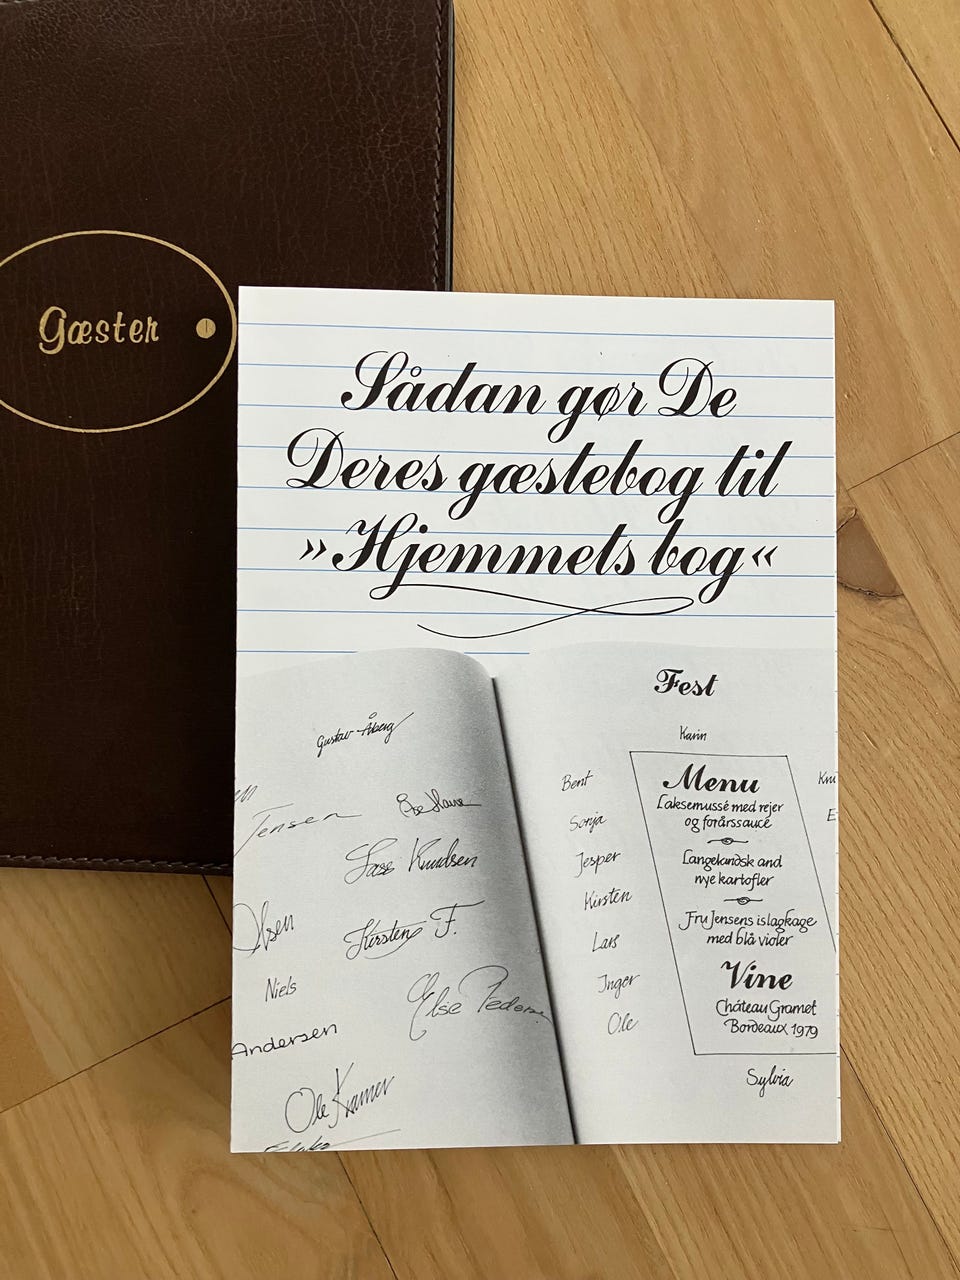 Gæster
Sådan gør De
Deres gæstebog til
»Hjemmets bog«
Gustav Åberg
Jensen
Lass Knudsen
Olsen
Kirsten F.
Niels
Else Pedersen
Andersen
Ole Kramer
Fest
Karin
Bent
Sonja
Jesper
Kirsten
Lars
Inger
Ole
Menu
Laksemussé med rejer
og forårssauce
Langelandsk and
nye kartofler
Fru Jensens islagkage
med blå violer
Vine
Cháteau Gramet
Bordeaux 1979
Sylvia